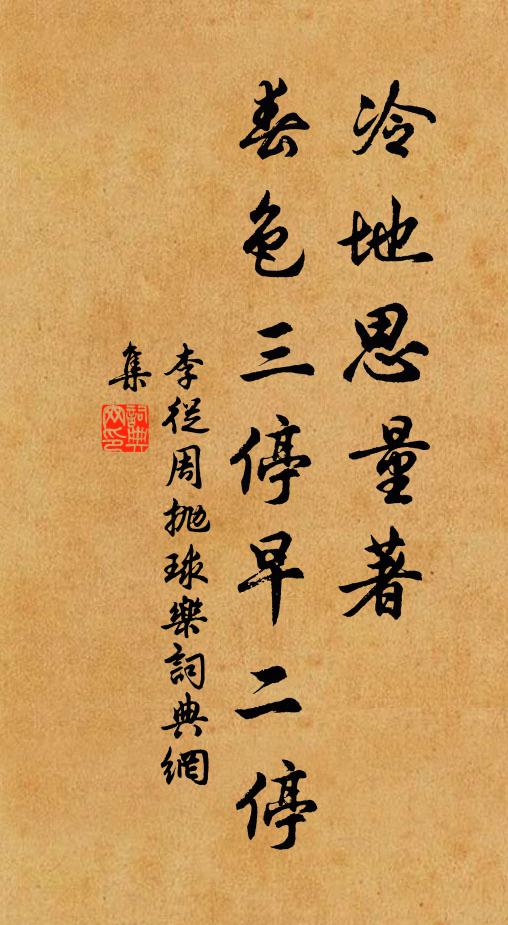 冷地思量著
春色三停早二停
李從周拋球樂詞典網
集
詞典
网印